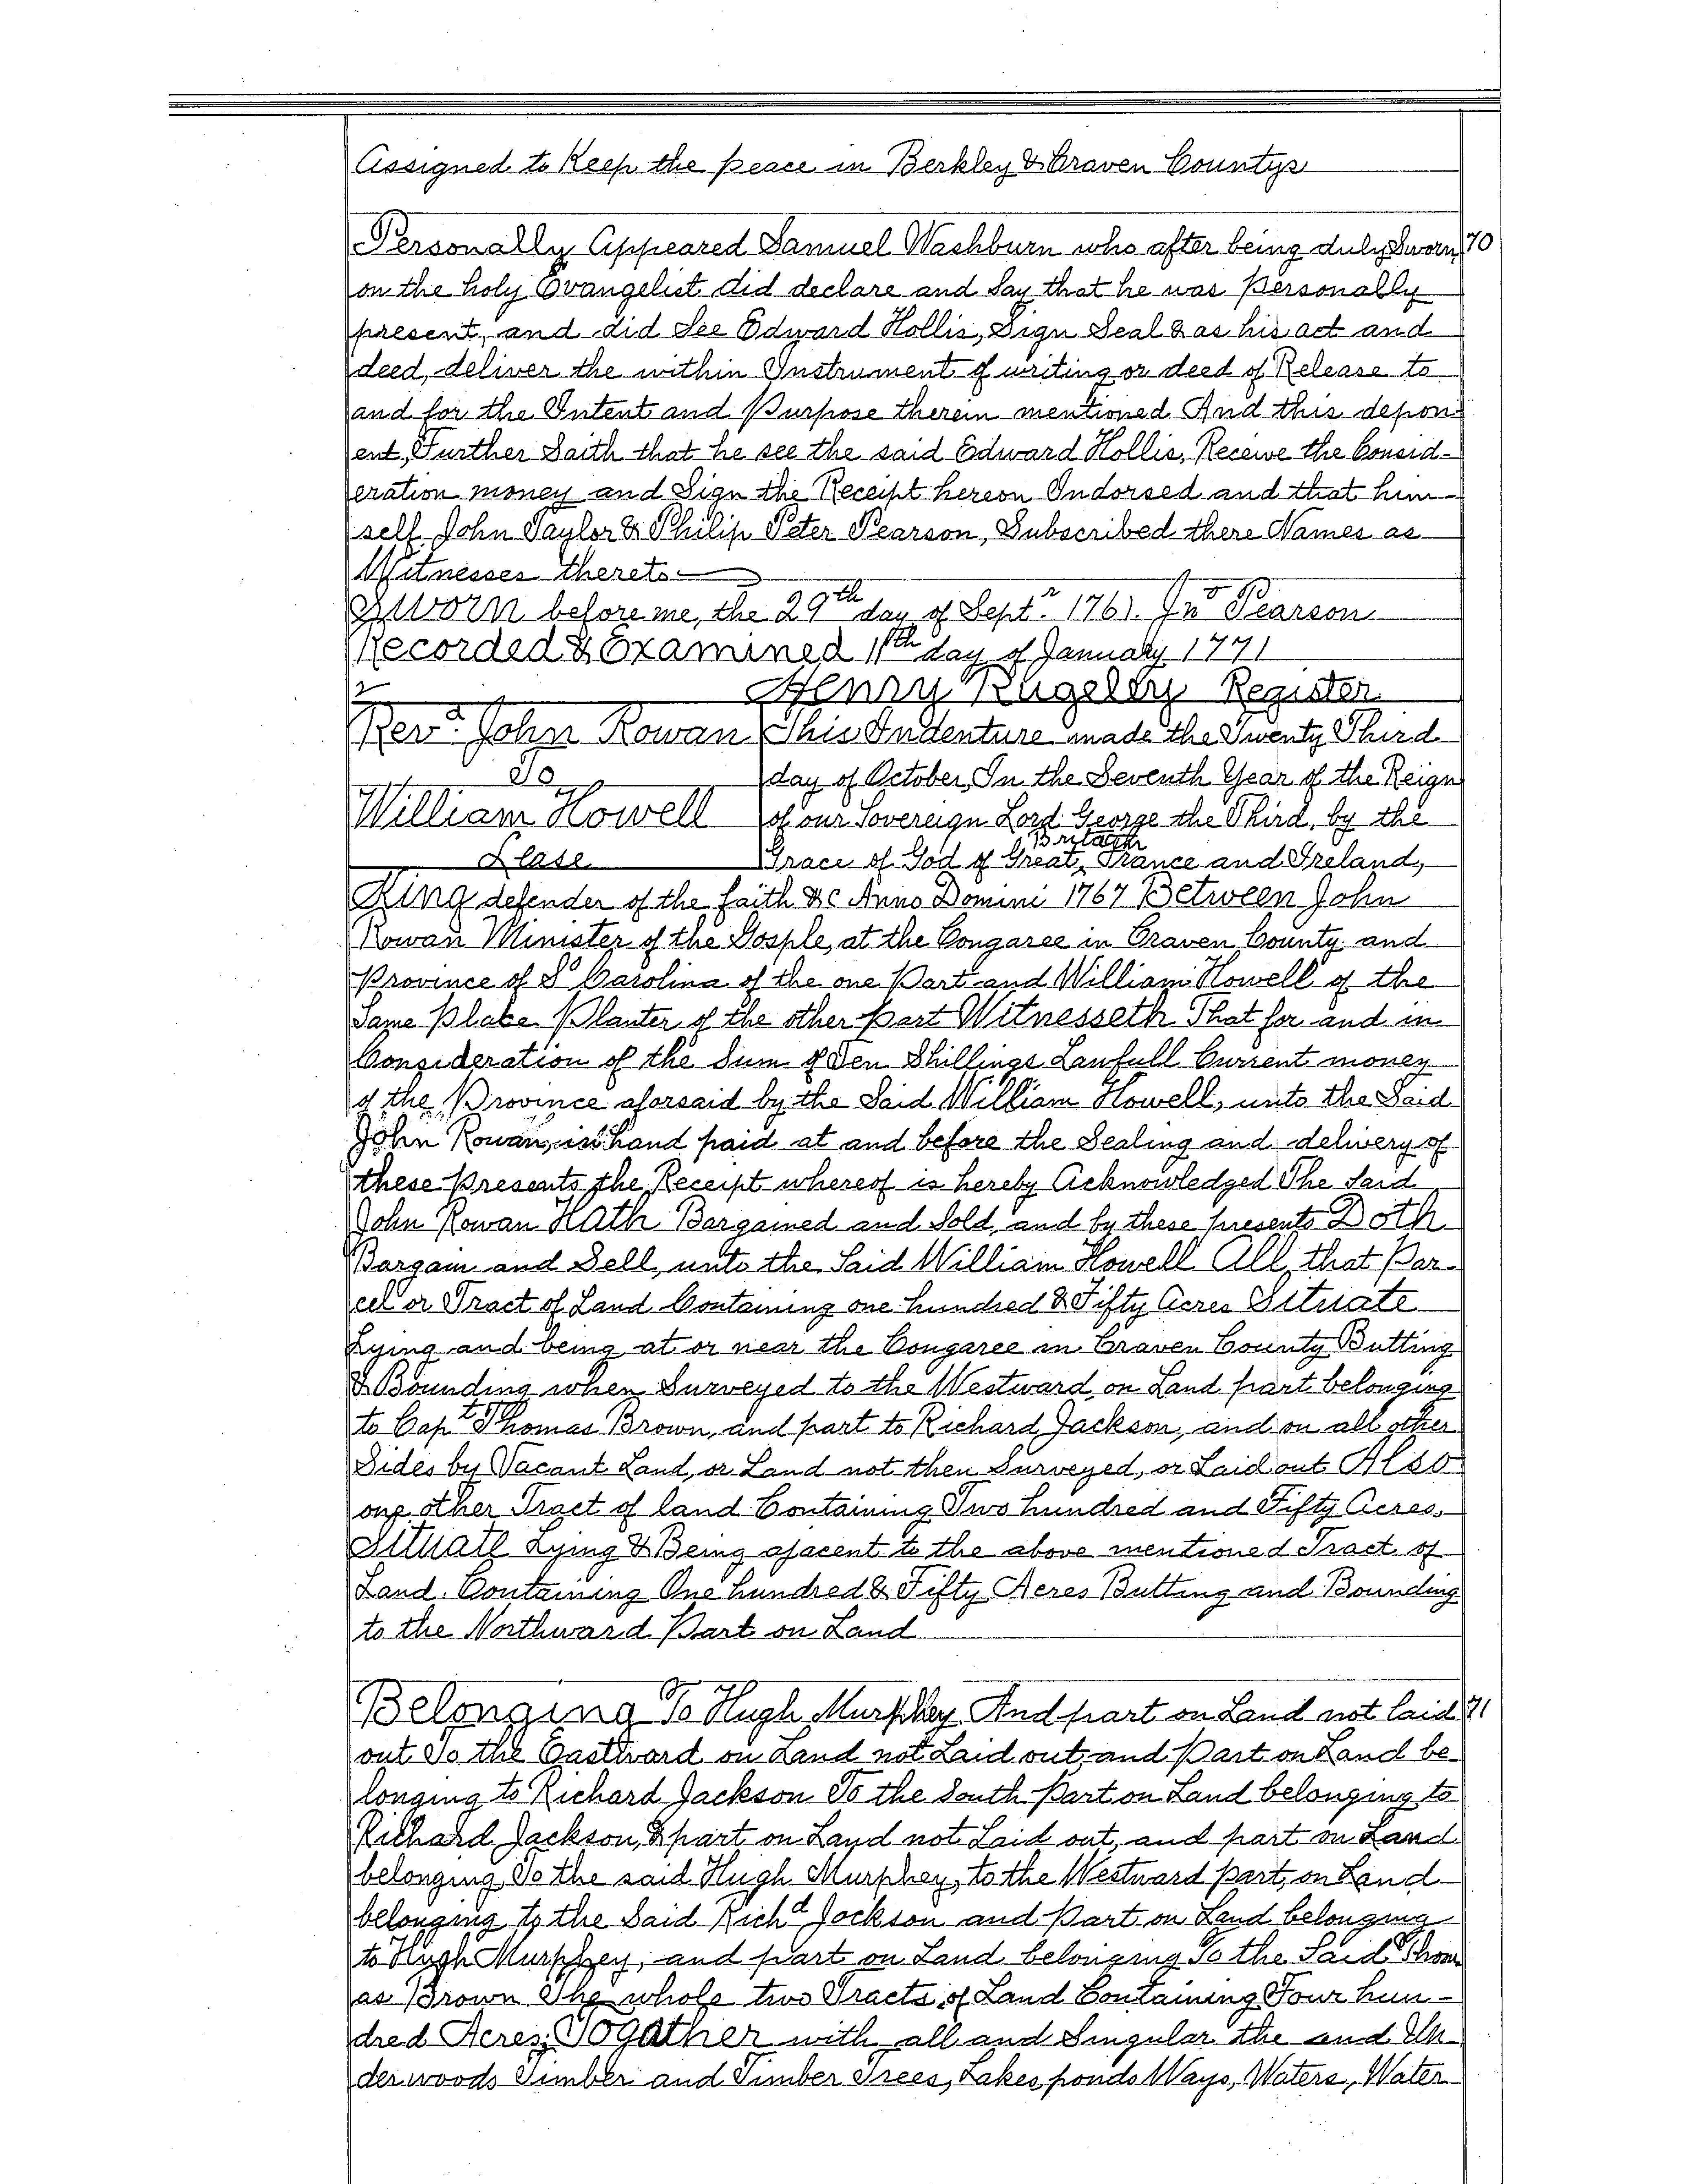 Assigned to Keep the peace in Berkley & Craven Countys
Personally Appeared Samuel Washburn who after being duly Sworn, 70
on the holy Evangelist did declare and Say that he was Personally
present, and did See Edward Hollis, Sign Seal & as his act and
deed, deliver the within Instrument of writing or deed of Release to
and for the Intent and Purpose therein mentioned And this depon-
ent, Further Saith that he see the said Edward Hollis, Receive the Consid-
eration money and Sign the Receipt hereon Indorsed and that him-
self John Taylor & Philip Peter Pearson, Subscribed there Names as
Witnesses thereto
Sworn before me, the 29th day of Septr. 1761. Jno Pearson
Recorded & Examined 11th day of January 1771
Henry Rugeley Register
Revd. John Rowan This Indenture made the Twenty Third
To day of October, In the Seventh Year of the Reign
William Howell of our Sovereign Lord George the Third, by the
Lease Grace of God of Great Britain, France and Ireland,
King defender of the faith &c Anno Domini 1767 Between John
Rowan Minister of the Gosple, at the Congaree in Craven County and
Province of So Carolina of the one Part and William Howell of the
Same Place Planter of the other part Witnesseth That for and in
Consideration of the Sum of Ten Shillings Lawfull Current money
of the Province aforsaid by the Said William Howell, unto the Said
John Rowan, in hand paid at and before the Sealing and delivery of
these Presents the Receipt whereof is hereby Acknowledged The Said
John Rowan Hath Bargained and Sold, and by these presents Doth
Bargain and Sell, unto the Said William Howell All, that Par-
cel or Tract of Land Containing one hundred & Fifty Acres Situate
Lying and being at or near the Congaree in Craven County Butting
& Bounding when Surveyed to the Westward, on Land part belonging
to Capt Thomas Brown, and part to Richard Jackson, and on all other
Sides by Vacant Land, or Land not then Surveyed, or Laid out Also
one other Tract of land Containing Two hundred and Fifty Acres,
Situate Lying & Being ajacent to the above mentioned Tract of
Land. Containing One hundred & Fifty Acres Butting and Bounding
to the Northward Part on Land
Belonging To Hugh Murphey And part on Land not laid 71
out To the Eastward on Land not Laid out, and Part on Land be-
longing to Richard Jackson To the South Part on Land belonging to
Richard Jackson, & part on Land not Laid out, and part on Land
belonging To the said Hugh Murphey, to the Westward part, on Land
belonging to the Said Richd Jackson and Part on Land belonging
to Hugh Murphey, and part on Land belonging To the Said Thom
as Brown The whole two Tracts of Land Containing Four hun-
dred Acres, Togather with all and Singular the and Un-
derwoods Timber and Timber Trees, Lakes, ponds Ways, Waters, Water